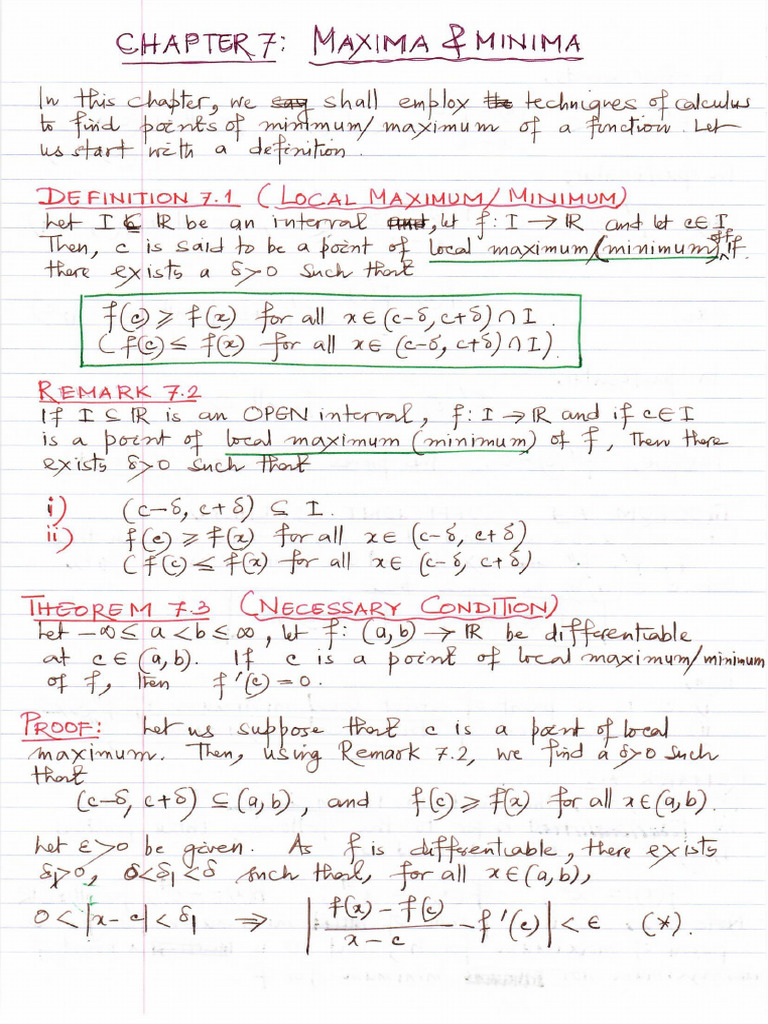 CHAPTER 7: MAXIMA & MINIMA
In this chapter, we shall employ techniques of calculus
to find points of minimum/maximum of a function. Let
us start with a definition.
DEFINITION 7.1 (LOCAL MAXIMUM/MINIMUM)
Let I ⊆ ℝ be an interval, let f: I → ℝ and let c ∈ I.
Then, c is said to be a point of local maximum/(minimum) of f if
there exists a δ>0 such that
f(c) ≥ f(x) for all x ∈ (c-δ, c+δ) ∩ I.
(f(c) ≤ f(x) for all x ∈ (c-δ, c+δ) ∩ I).
REMARK 7.2
If I ⊆ ℝ is an OPEN interval, f: I → ℝ and if c ∈ I
is a point of local maximum (minimum) of f, then there
exists δ>0 such that
i) (c-δ, c+δ) ⊆ I.
ii) f(c) ≥ f(x) for all x ∈ (c-δ, c+δ)
(f(c) ≤ f(x) for all x ∈ (c-δ, c+δ)
THEOREM 7.3 (NECESSARY CONDITION)
Let -∞ ≤ a < b ≤ ∞, let f: (a,b) → ℝ be differentiable
at c ∈ (a,b). If c is a point of local maximum/minimum
of f, then f'(c) = 0.
PROOF: Let us suppose that c is a point of local
maximum. Then, using Remark 7.2, we find a δ>0 such
that
(c-δ, c+δ) ⊆ (a,b), and f(c) ≥ f(x) for all x ∈ (a,b).
Let ε>0 be given. As f is differentiable, there exists
δ₁>0, 0<δ₁<δ such that, for all x ∈ (a,b),
0 < |x-c| < δ₁ ⇒ |(f(x) - f(c))/(x-c) - f'(c)| < ε (*).